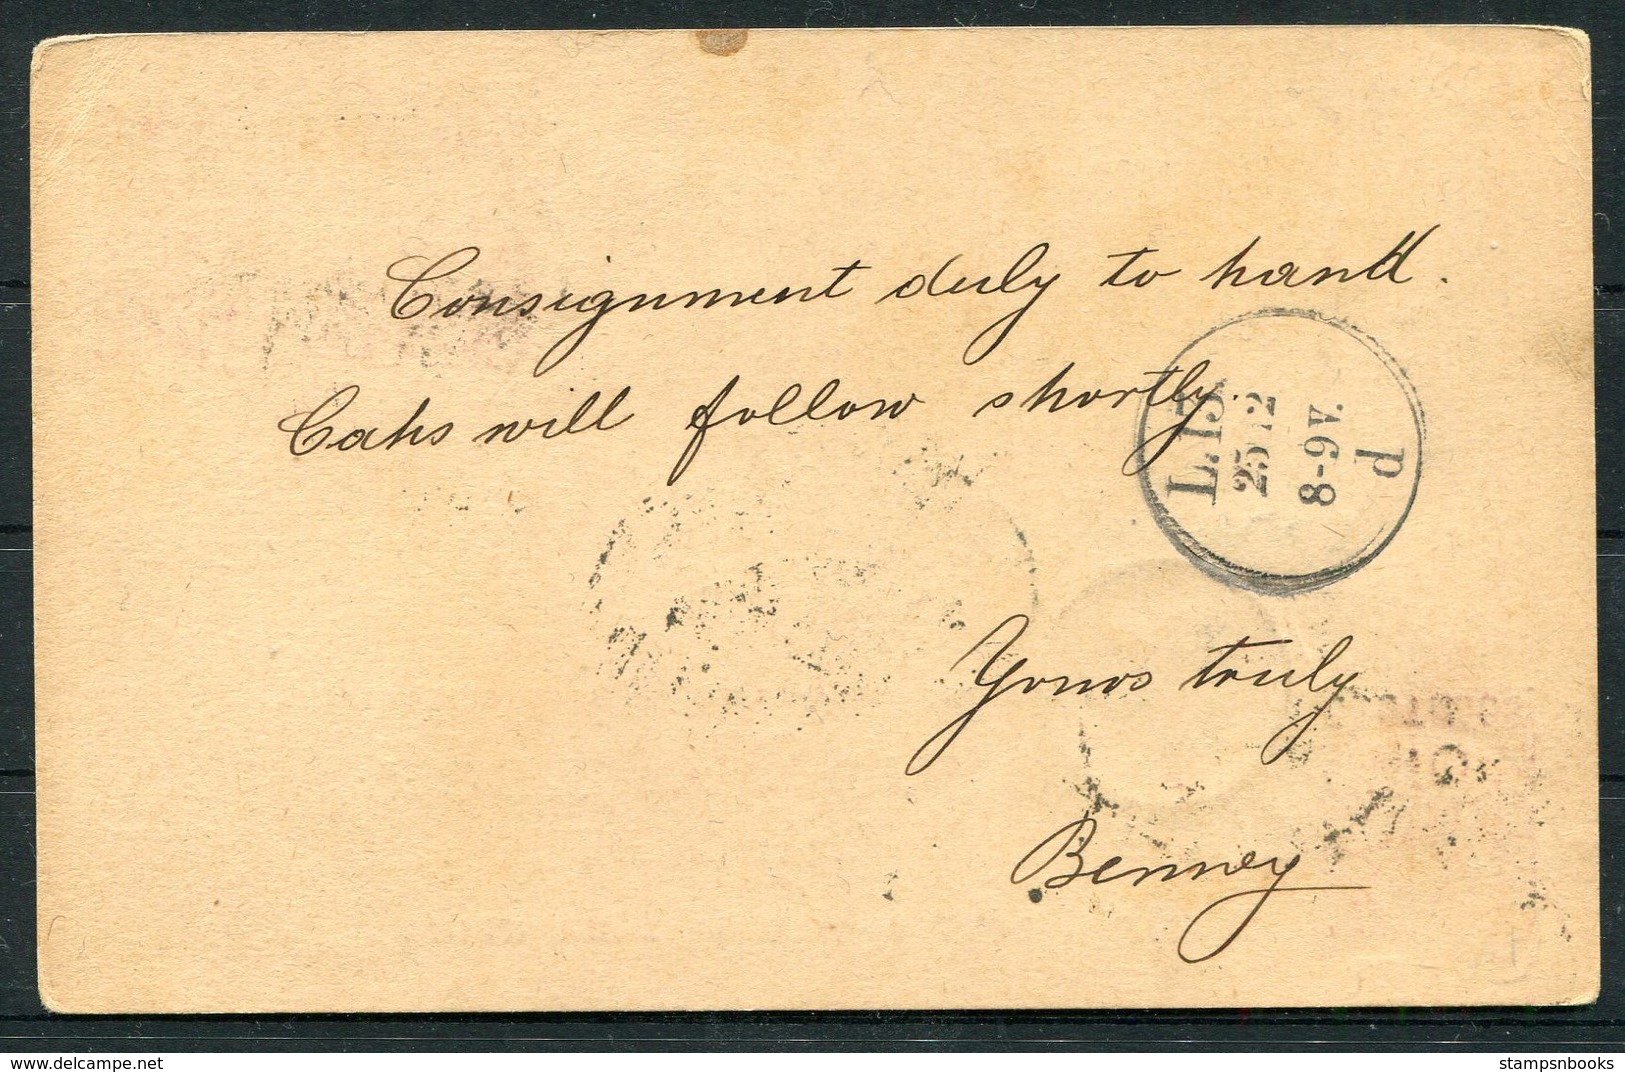 Consignment duly to hand.
Cahs will follow shortly.
L.13.
25 12
8-9V.
d
Yours truly
Benney
hip-post.com
stampsnbooks